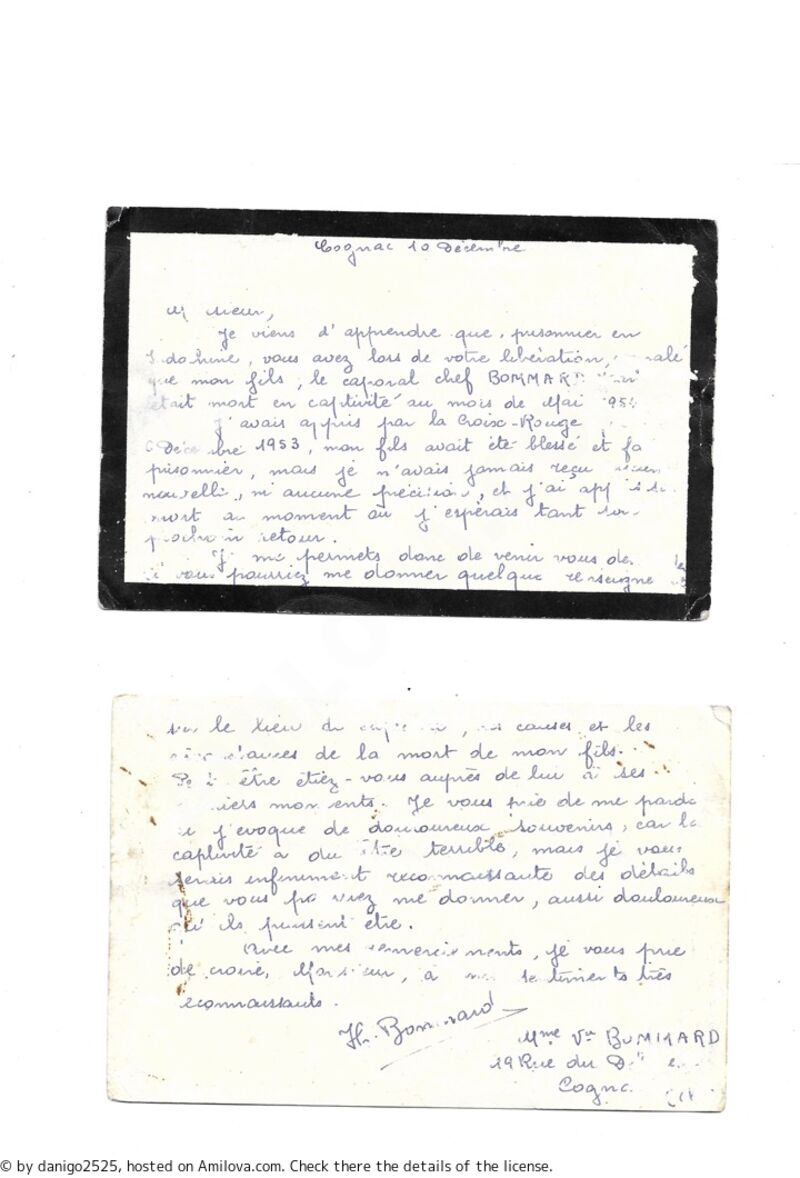 Cognac 10 Décembre
Je viens d'apprendre que, prisonnier en
, vous avez lors de votre libération,
que mon fils, le caporal chef BOMMARD
était mort en captivité au mois de Mai 1954
J'avais appris par la Croix-Rouge
1953, mon fils avait été blessé et
prisonnier, mais je n'avais jamais reçu
nouvelle, ni aucune précision, et j'ai
mort au moment où j'espérais tant
retour.
Je me permets donc de venir vous
si vous pourriez me donner quelque
le lieu de causes et les
de la mort de mon fils.
être étiez-vous auprès de lui à ses
moments. Je vous prie de me
si j'evoque de douloureux souvenirs, car la
captivité a du être terrible, mais je vous
serais infiniment reconnaissante des détails
que vous pourriez me donner, aussi douloureux
qu'ils puissent être.
Avec mes remerciements, je vous prie
de croire, Monsieur, à mes sentiments très
reconnaissants.
H. Bommard
Mme Vve BOMMARD
19 Rue du
Cognac
© by danigo2525, hosted on Amilova.com. Check there the details of the license.